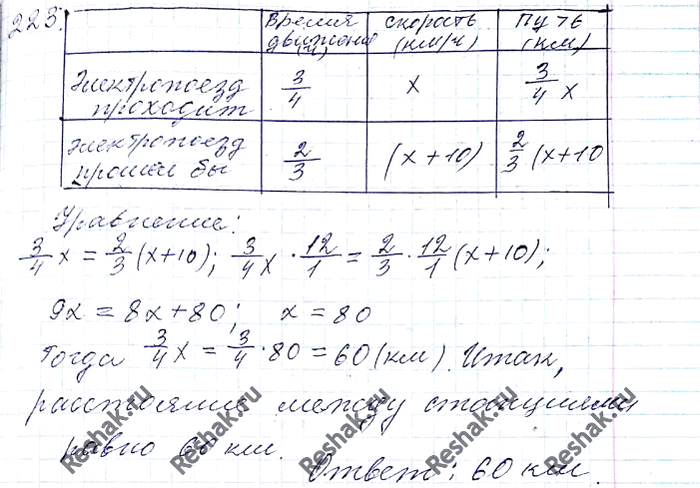 223.
Время движения (ч) | скорость (км/ч) | путь (км)
Электропоезд проходит | 3/4 | x | 3/4 x
Электропоезд прошёл бы | 2/3 | (x+10) | 2/3 (x+10
Уравнение:
3/4 x = 2/3 (x+10); 3/4 x · 12/1 = 2/3 · 12/1 (x+10);
9x = 8x+80; x = 80
Тогда 3/4 x = 3/4 · 80 = 60 (км). Итак,
расстояние между станциями
равно 60 км.
Ответ: 60 км.
Reshak.ru Reshak.ru Reshak.ru Reshak.ru Reshak.ru